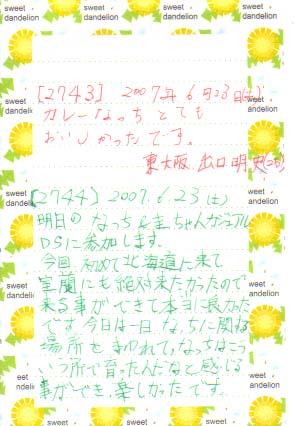 sweet dandelion
sweet dandelion
sweet dandelion
[2743] 2007年6月23日(土)
カレーなっち とても
おいしかったです。
東大阪 出口明
[2744] 2007.6.23(土)
明日の なっち&圭ちゃんカジュアル
DSに参加します。
今回、初めて北海道に来て
室蘭にも絶対来たかったので
来る事ができて本当に良かった
です。今日は一日、なっちに関する
場所をまわれて、なっちはこう
いう所で育ったんだなと感じる
事ができ、楽しかったです。
sweet dandelion
sweet dandelion
sweet dandelion
sweet dandelion
sweet dandelion